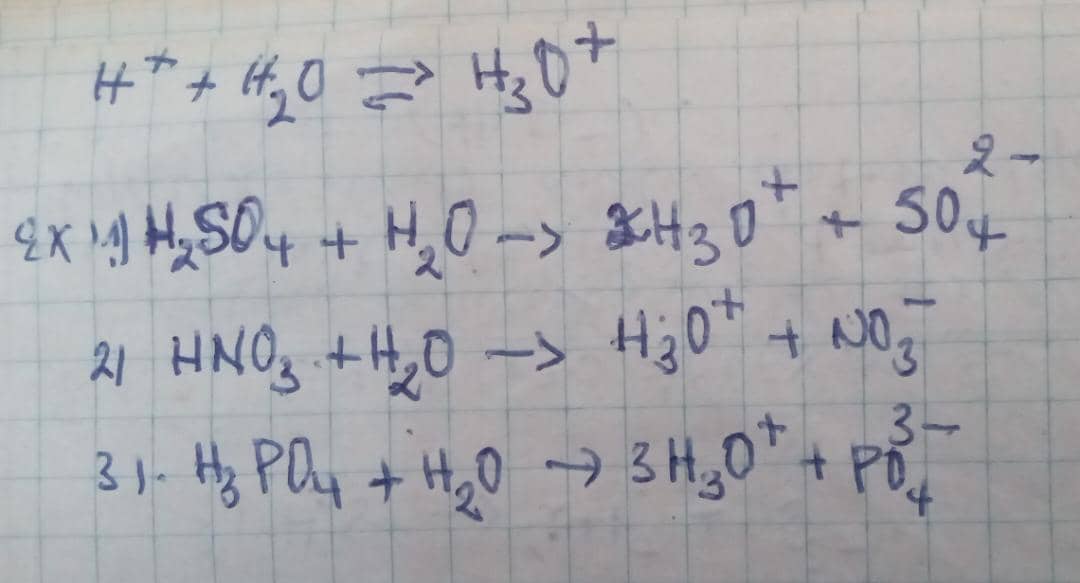 H⁺ + H₂O ⇌ H₃O⁺
Ex : 1) H₂SO₄ + H₂O → 2H₃O⁺ + SO₄²⁻
2) HNO₃ + H₂O → H₃O⁺ + NO₃⁻
3) H₃PO₄ + H₂O → 3H₃O⁺ + PO₄³⁻